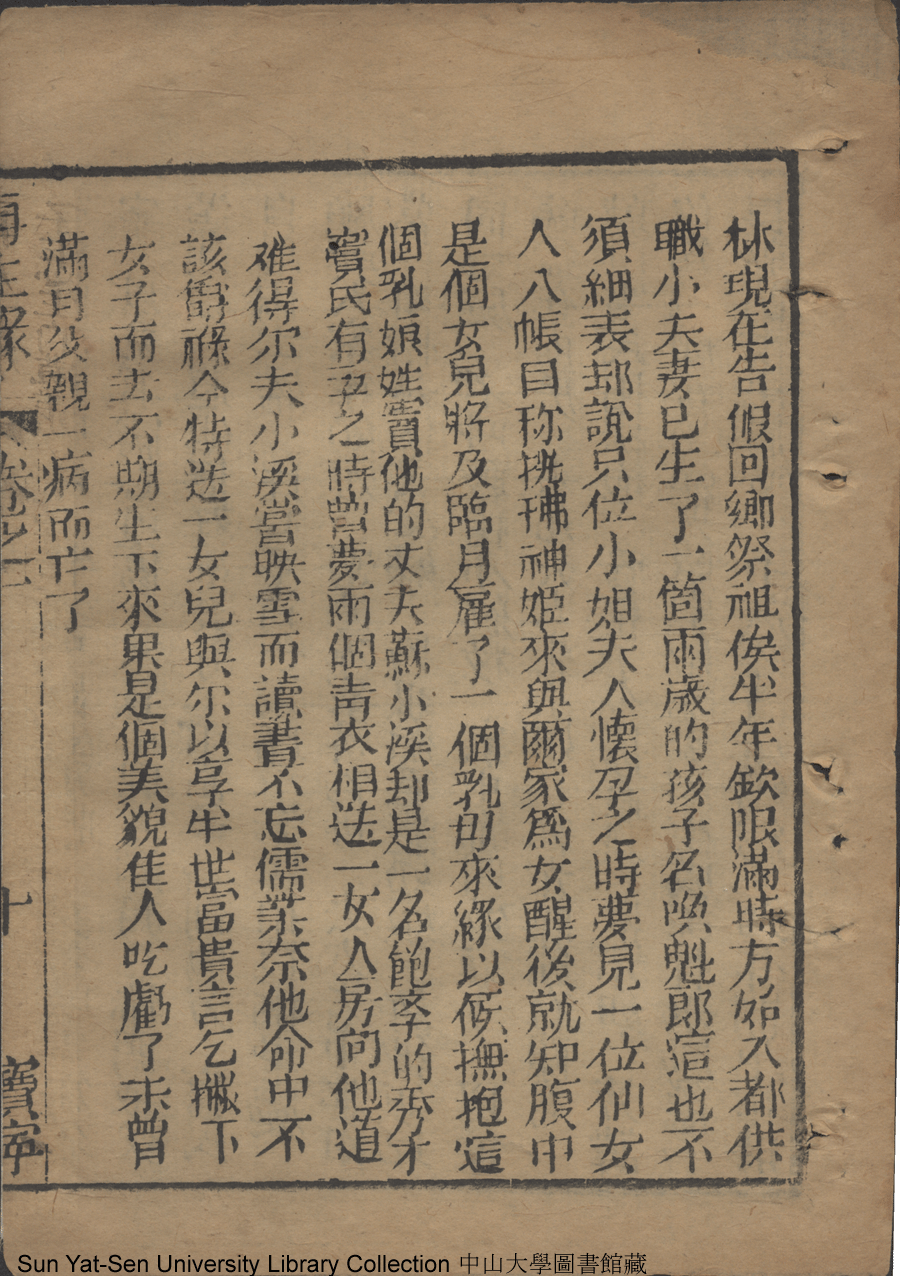 林現在告假回鄉祭祖俟半年欽限滿時方始入都供
職小夫妻已生了一箇兩歲的孩子名喚魁郎這也不
須細表却說只位小姐夫人懷孕之時夢見一位仙女
人入帳目称挑珠神姬來與爾家爲女醒後就知腹中
是個女兒將及臨月雇了一個乳母來緣以候撫抱這
個乳娘姓賨他的丈夫蘇小溪却是一名飽孝的秀才
賨氏有孕之時曾夢兩個青衣相送一女入房向他道
难得尔夫小溪嘗映雪而讀書不忘儒業奈他命中不
該爵祿今特送一女兒與尔以享半世富貴言乞擲下
女子而去不期生下來果是個美貌佳人吃虧了未曾
滿月父親一病而亡了
再生緣 卷之一 十 寳寧